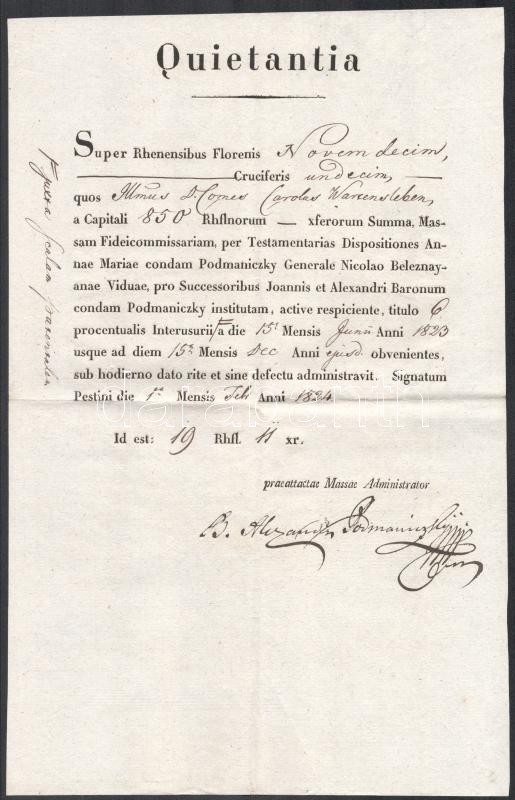 Quietantia
Super Rhenensibus Florenis Novem decim,
Cruciferis undecim,
quos Illmus D. Comes Carolus Wartensleben,
a Capitali 850 Rhflnorum — xferorum Summa, Mas-
sam Fideicommissariam, per Testamentarias Dispositiones An-
nae Mariae condam Podmaniczky Generale Nicolao Beleznay-
anae Viduae, pro Successoribus Joannis et Alexandri Baronum
condam Podmaniczky institutam, active respiciente, titulo 6
procentualis Interusurii a die 15a Mensis Junii Anni 1823
usque ad diem 15a Mensis Dec Anni ejusd. obvenientes,
sub hodierno dato rite et sine defectu administravit. Signatum
Pestini die 1a Mensis Feb Anni 1824
Id est: 19 Rhfl. 11 xr.
praeattactae Massae Administrator
B. Alexander Podmaniczky
juxta Scalam